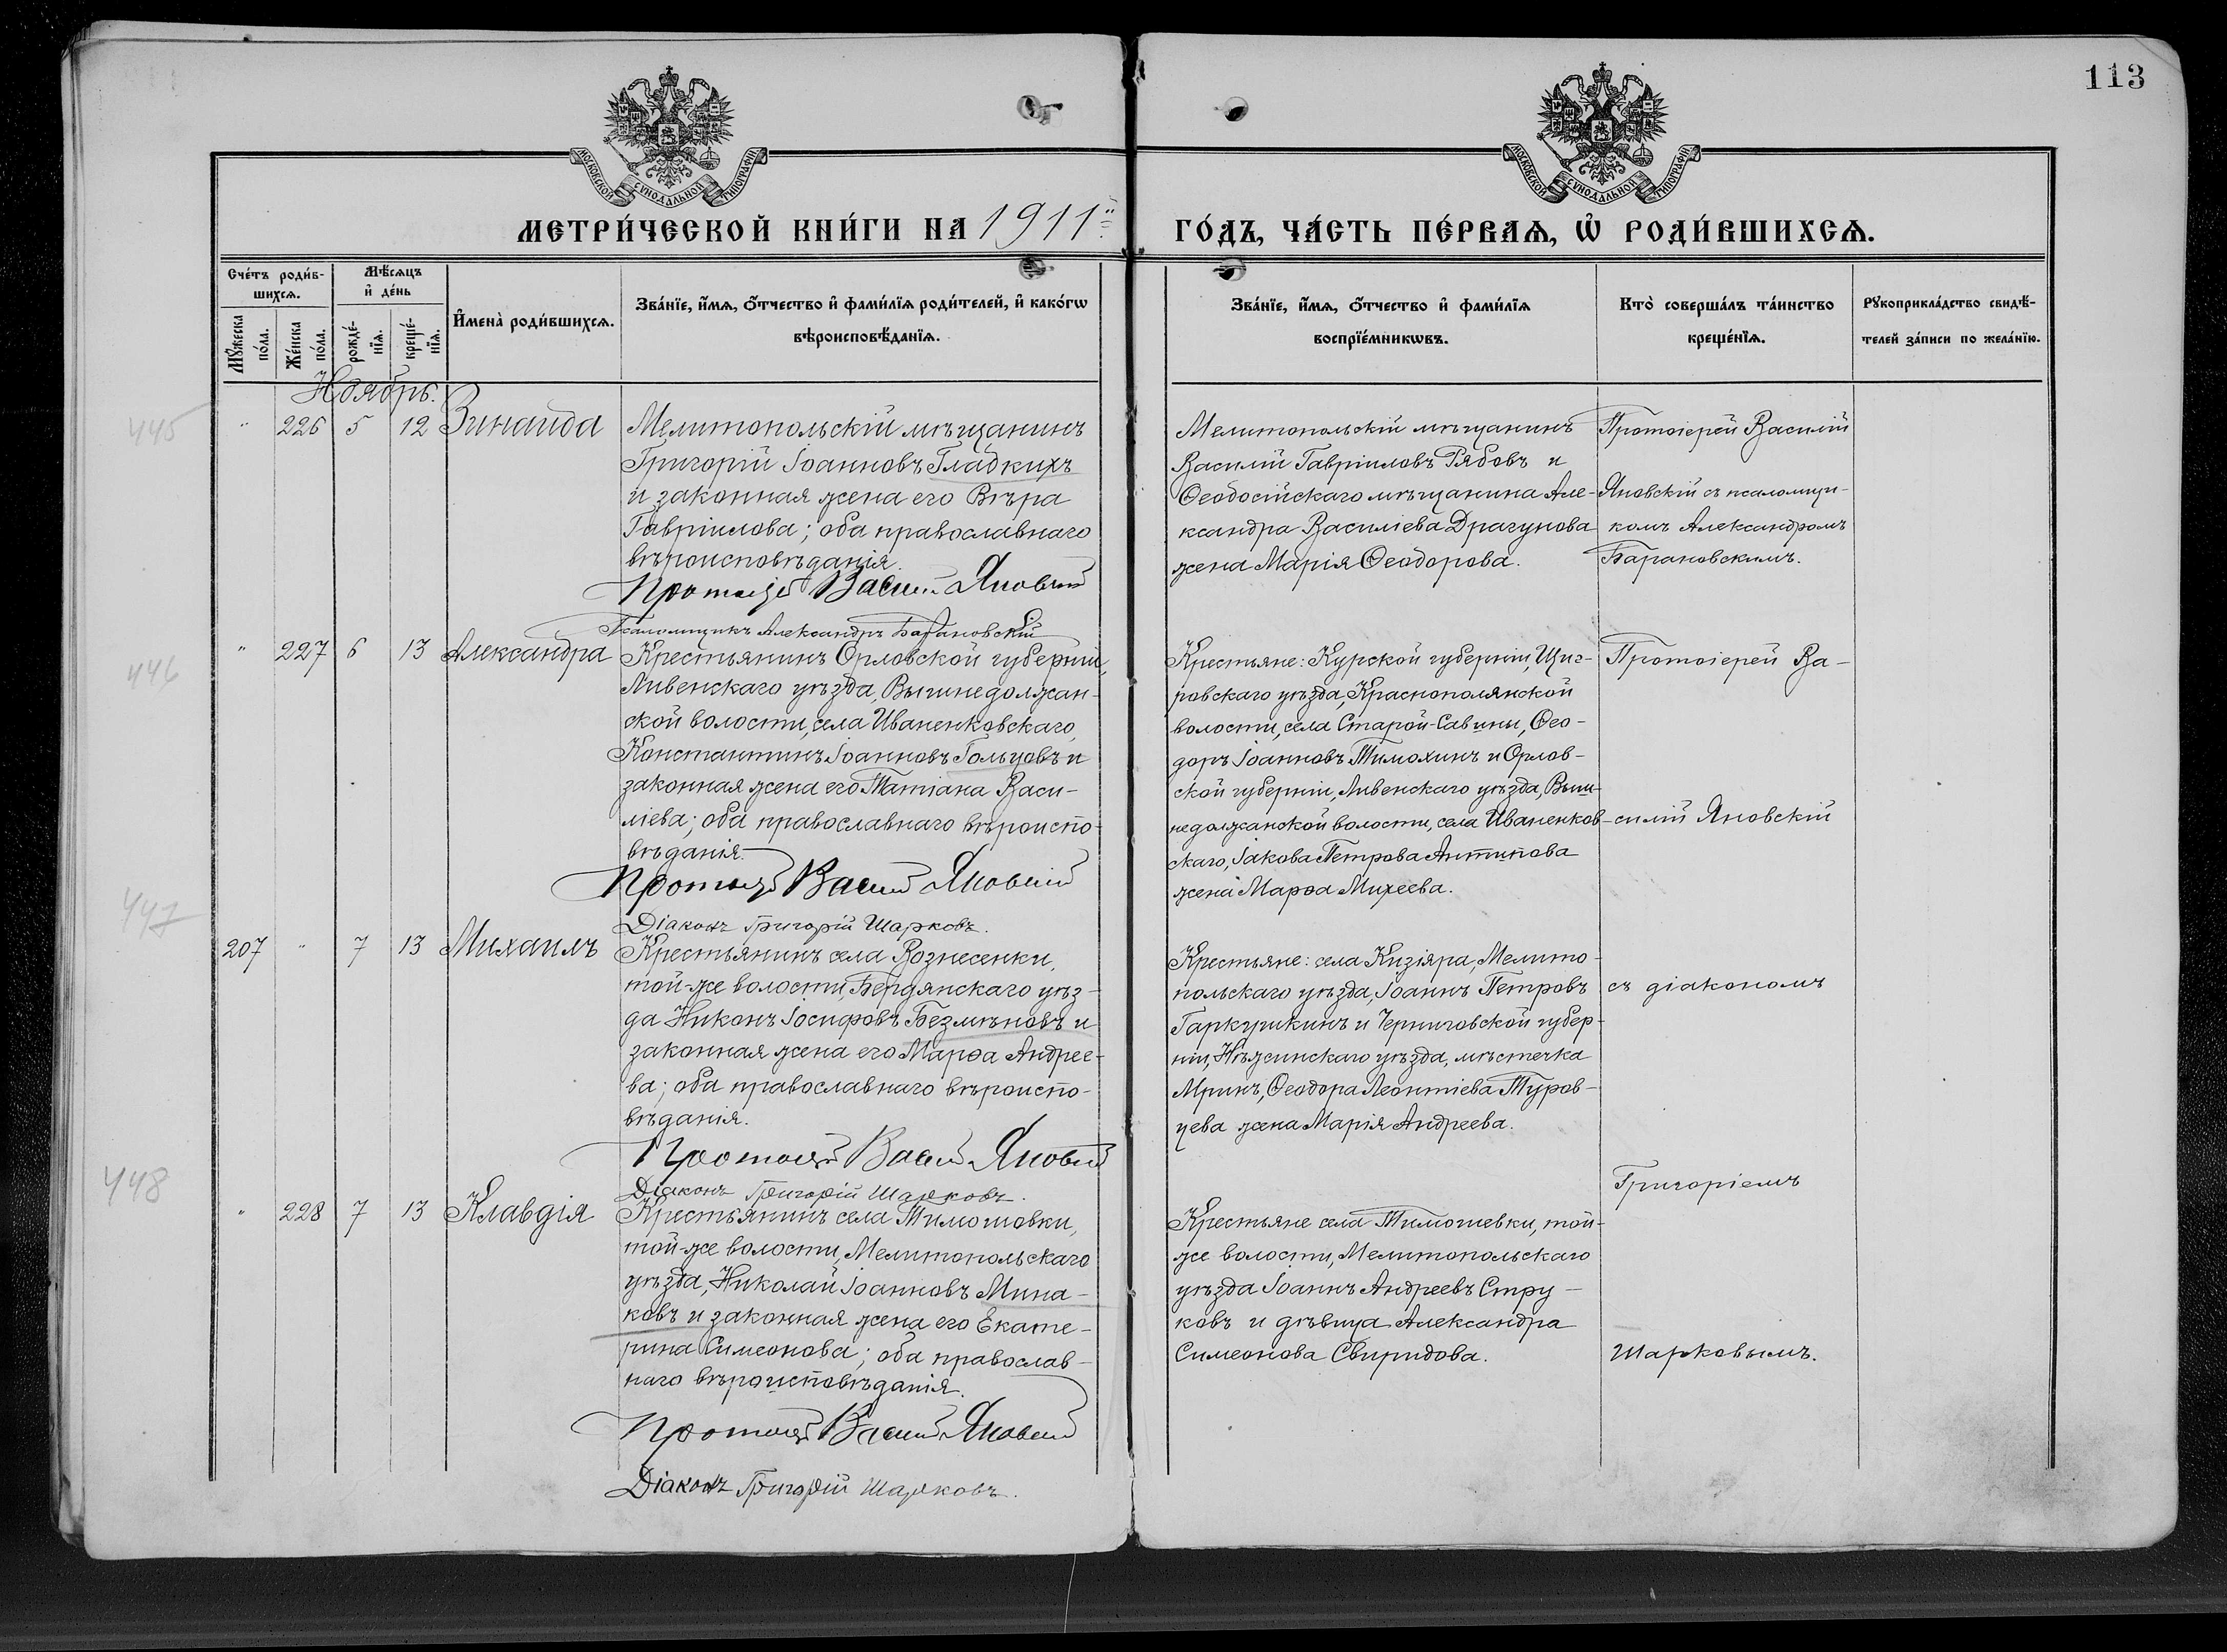 113
МОСКОВСКОЙ СѴНОДАЛЬНОЙ ТИПОГРАФІИ.
МОСКОВСКОЙ СѴНОДАЛЬНОЙ ТИПОГРАФІИ.
МЕТРИ́ЧЕСКОЙ КНИ́ГИ НА 1911й
ГО́ДЪ, ЧА́СТЬ ПЕ́РВАѦ, Ѡ҆ РОДИ́ВШИХСѦ.
Сче́тъ роди́в-
шихсѧ.
Мѣ́сѧцъ
и҆ де́нь
Мꙋ́жеска
по́ла.
Же́нска
по́ла.
рожде́-
нїѧ.
креще́-
нїѧ.
И҆мена̀ роди́вшихсѧ.
Зва́нїе, и҆́мѧ, ѻ҆́тчество и҆ фами́лїѧ роди́телей, и҆ како́гѡ
вѣроисповѣ́данїѧ.
Зва́нїе, и҆́мѧ, ѻ҆́тчество и҆ фами́лїѧ
воспрїе́мникѡвъ.
Кто̀ соверша́лъ та́инство
креще́нїѧ.
Рꙋкоприкла́дство свидѣ́-
телей за́писи по жела́нїю.
Ноябрь.
445
" 226 5 12 Зинаида
Мелитопольскій мѣщанинъ
Григорій Іоанновъ Гладкихъ
и законная жена его Вѣра
Гавріилова; оба православнаго
вѣроисповѣданія.
Протоіерей Василій Яновскій
Псаломщикъ Александръ Барановскій
Мелитопольскій мѣщанинъ
Василій Гавріиловъ Рябовъ и
Ѳеодосійскаго мѣщанина Але-
ксандра Василіева Драгунова
жена Марія Ѳеодорова.
Протоіерей Василій
Яновскій съ псаломщи-
комъ Александромъ
Барановскимъ.
446
" 227 6 13 Александра
Крестьянинъ Орловской губерніи,
Ливенскаго уѣзда, Вышнедолжан-
ской волости, села Иваненковскаго,
Константинъ Іоанновъ Гольцовъ и
законная жена его Татіана Васи-
ліева; оба православнаго вѣроиспо-
вѣданія.
Протоіерей Василій Яновскій
Діаконъ Григорій Шарковъ.
Крестьяне: Курской губерніи, Щиг-
ровскаго уѣзда, Краснополянской
волости, села Старой-Савины, Ѳео-
доръ Іоанновъ Тимохинъ и Орлов-
ской губерніи, Ливенскаго уѣзда, Выш-
недолжанской волости, села Иваненков-
скаго, Іакова Петрова Антипова
жена Марѳа Михеева.
Протоіерей Ва-
силій Яновскій
447
207 " 7 13 Михаилъ
Крестьянинъ села Вознесенки,
той-же волости, Бердянскаго уѣз-
да Никонъ Іосифовъ Безмѣновъ и
законная жена его Марѳа Андрее-
ва; оба православнаго вѣроиспо-
вѣданія.
Протоіерей Василій Яновскій
Діаконъ Григорій Шарковъ.
Крестьяне: села Кизіяра, Мелито-
польскаго уѣзда, Іоаннъ Петровъ
Гаркушкинъ и Черниговской губер-
ніи, Нѣжинскаго уѣзда, мѣстечка
Мринъ, Ѳеодора Леонтіева Туров-
цева жена Марія Андреева.
съ діакономъ
Григоріемъ
448
" 228 7 13 Клавдія
Крестьянинъ села Тимошовки,
той-же волости, Мелитопольскаго
уѣзда, Николай Іоанновъ Мина-
ковъ и законная жена его Екате-
рина Симеонова; оба православ-
наго вѣроисповѣданія.
Протоіерей Василій Яновскій
Діаконъ Григорій Шарковъ.
Крестьяне села Тимошевки, той-
же волости, Мелитопольскаго
уѣзда Іоаннъ Андреевъ Стру-
ковъ и дѣвица Александра
Симеонова Свиридова.
Шарковымъ.